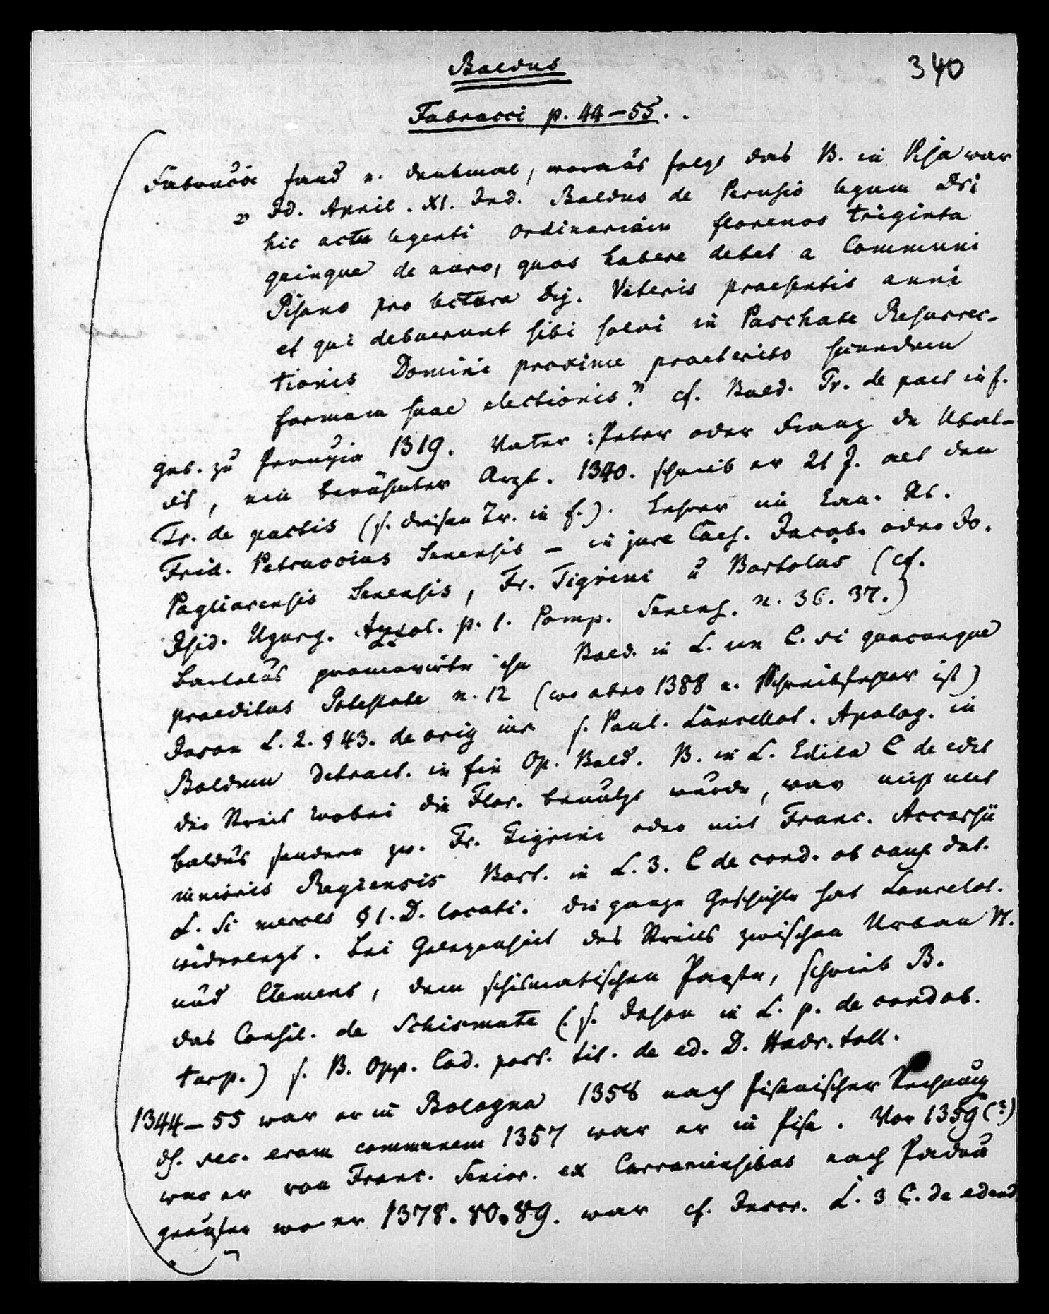 Baldus
340
Fabrucci p. 44–55.
Fabrucci fand e. Denkmal, woraus folgt das B. in Pisa war
Id. April. XI. Ind. Baldus de Perusio legum Dri
hic actu legenti ordinariam florenos triginta
quinque de auro, quos habere debet a Communi
Pisano pro lectura Dig. Veteris praesentis anni
et qui debuerunt sibi solvi in Paschate Resurrec-
tionis Domini proxime praeterito secundum
formam suae electionis." cf. Bald. Tr. de pact in f.
geb. zu Perugia 1319. Vater: Peter oder Franz de Ubal-
dis, ein berühmter Arzt. 1340. schrieb er 21 J. alt den
Tr. de pactis (s. diesen Tr. in f.). Lehrer im Can. R.
Frid. Petruccius Senensis – in jure Caes. Jacob. oder Jo.
Pagliarensis Senensis, Fr. Tigrini u Bartolus (cf.
Isid. Ugurg. p. 1. Pomp. Senens. n. 36. 37.)
Bartolus promovirte ihn Bald. in L. un C. si quacunque
praeditus Potestate n. 12 (wo aber 1388 e. Schreibfehler ist)
Jason L. 2. § 43. de orig iur s. Paul. Lancellot. Apolog. in
Baldum detract. in fin Op. Bald. B. in L. Edita C de edit
der Streit wobei die Flor. benutzt wurde, war nicht mit
Baldus sondern zw. Fr. Tigrini oder mit Franc. Accorsii
minoris Regiensis Bart. in L. 3. C de cond. ob caus. dat.
L. Si merces § 1. D. locati. die ganze Geschichte hat Lancelot.
widerlegt. bei Gelegenheit des Streits zwischen Urban VI.
und Clemens, dem schismatischen Papste, schrieb B.
das Consil. de Schismate (s. Jason in L. p. de cond ob.
turp.) s. B. Opp. Cod. post. tit. de ed. D. Hadr. toll.
1344–55 war er in Bologna 1358 nach pisanischer Rechnung
dh. sec. eram communem 1357 war er in Pisa. Vor 1359 (?)
war er von Franc. Senior. ex Carrariensibus nach Padua
gerufen wo er 1378. 80. 89. war cf. L. 3 C. de edend